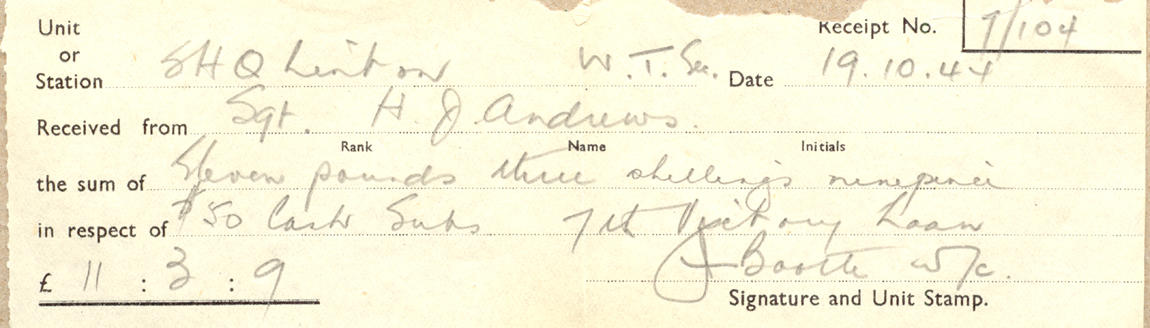 Unit Receipt No. 7/104
or
Station SHQ Linton W.T. Sec. Date 19.10.44
Received from Sgt. H. J. Andrews.
Rank Name Initials
the sum of Eleven pounds three shillings ninepence
in respect of $50 Cash Subs 7th Victory Loan
£ 11 : 3 : 9 J Booth w/c.
Signature and Unit Stamp.